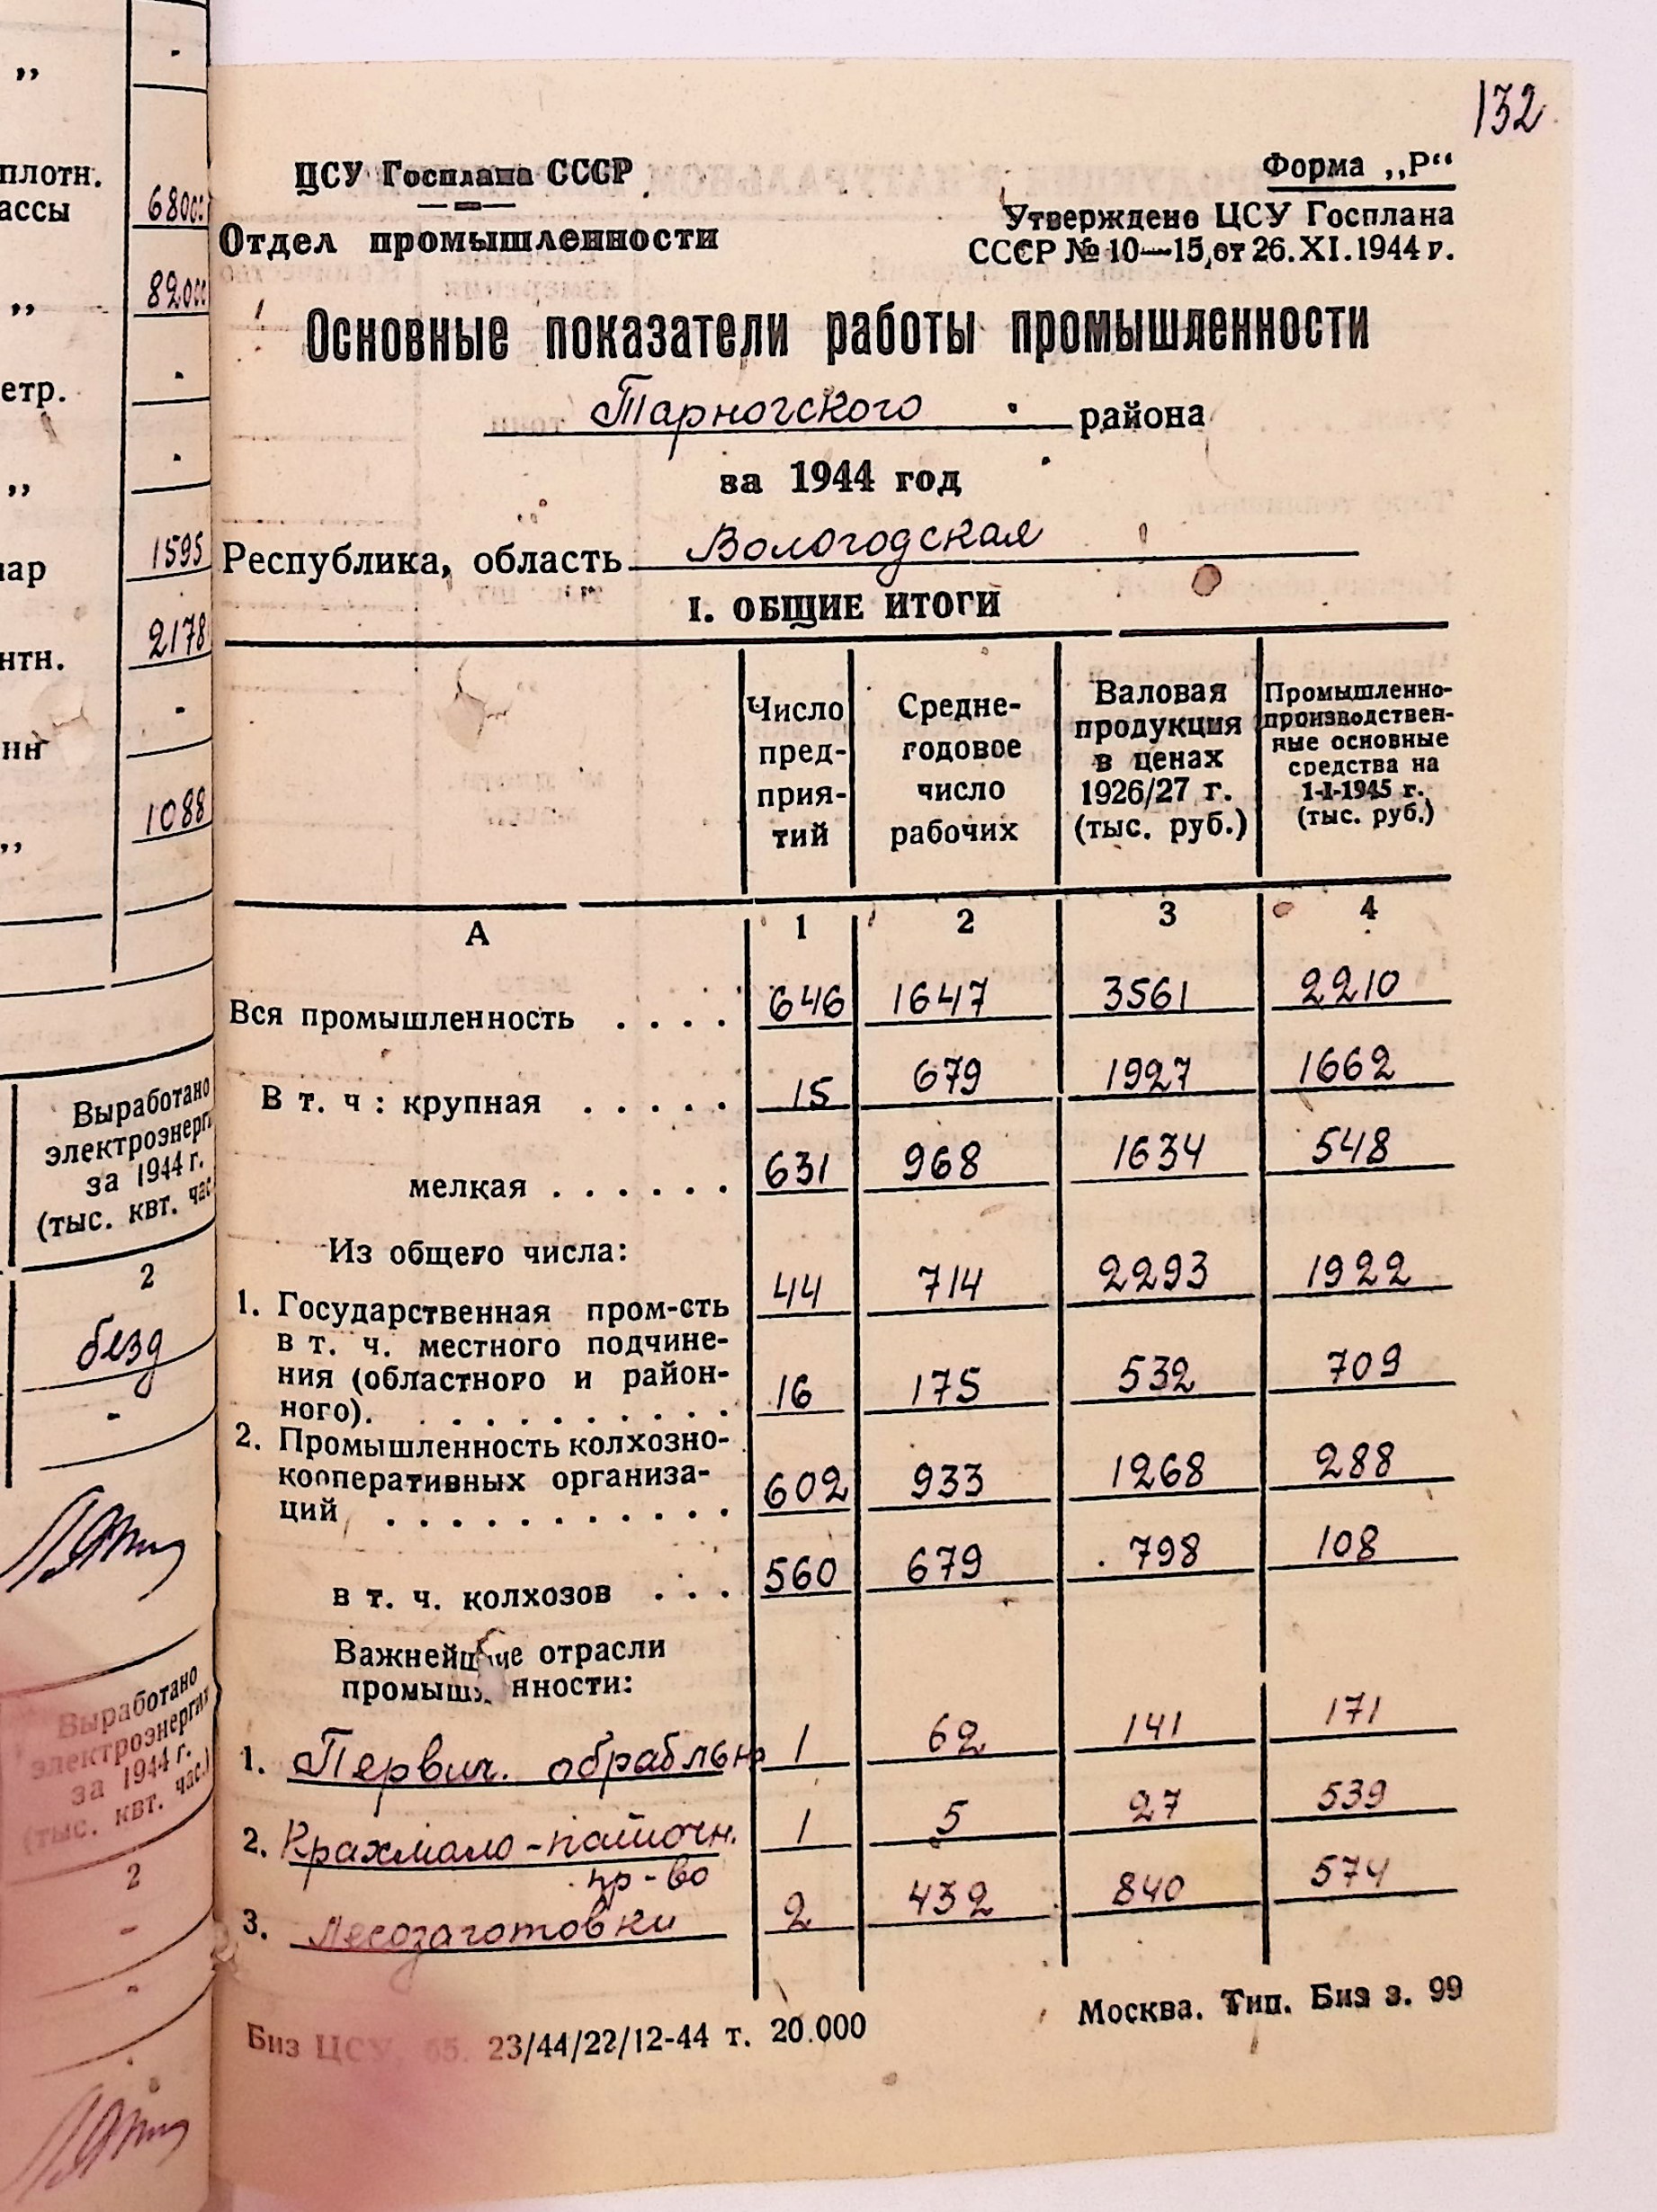 132
ЦСУ Госплана СССР
Отдел промышленности
Форма „Р“
Утверждено ЦСУ Госплана
СССР № 10—15, от 26.XI.1944 г.
Основные показатели работы промышленности
Тарногского района
за 1944 год
Республика, область Вологодская
I. ОБЩИЕ ИТОГИ
Число пред-прия-тий
Средне-годовое число рабочих
Валовая продукция в ценах 1926/27 г. (тыс. руб.)
Промышленно-производствен-ные основные средства на 1-I-1945 г. (тыс. руб.)
А 1 2 3 4
Вся промышленность . . . . 646 1647 3561 2210
В т. ч : крупная . . . . . 15 679 1927 1662
мелкая . . . . . . 631 968 1634 548
Из общего числа:
1. Государственная пром-сть 44 714 2293 1922
в т. ч. местного подчине-
ния (областного и район-
ного). . . . . . . . . . . 16 175 532 709
2. Промышленность колхозно-
кооперативных организа-
ций . . . . . . . . . . . 602 933 1268 288
в т. ч. колхозов . . . 560 679 798 108
Важнейшие отрасли
промышленности:
1. Первич. обраб льна 1 62 141 171
2. Крахмало-паточн. 1 5 27 539
пр-во
3. Лесозаготовки 2 432 840 574
Биз ЦСУ, 65. 23/44/22/12-44 т. 20.000
Москва. Тип. Биз з. 99
„
-
плотн.
ассы 68000
„ 82000
етр. -
„ -
пар 1595
нтн. 2178
нн -
„ 1088
Выработано
электроэнерги
за 1944 г.
(тыс. квт. час
2
безд
-
Выработано
электроэнергии
за 1944 г.
(тыс. квт. час.)
2
-
-